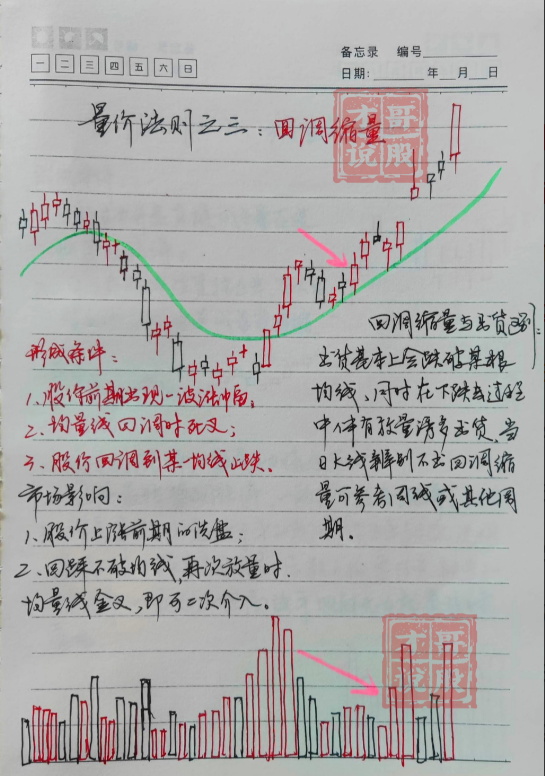 备忘录 编号
一 二 三 四 五 六 日
日期: 年 月 日
量价法则之三：回调缩量
才哥说股
形成条件：
1、股价前期出现一波涨幅。
2、均量线回调时死叉；
3、股价回调到某一均线止跌、
市场影响：
1、股价上涨前期的洗盘；
2、回踩不破均线,再次放量时.
均量线金叉,即可二次介入。
回调缩量与出货区别：
出货基本上会跌破某根
均线,同时在下跌过程
中伴有放量诱多出货、当
日K线辨别不出回调缩
量可参考周线或其他周
期。
才哥说股